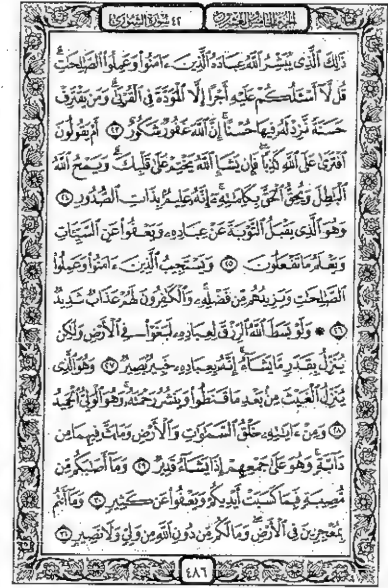 الجزء الخامس والعشرون ٤٢ سورة الشورى
ذَٰلِكَ ٱلَّذِى يُبَشِّرُ ٱللَّهُ عِبَادَهُ ٱلَّذِينَ ءَامَنُوا۟ وَعَمِلُوا۟ ٱلصَّٰلِحَٰتِۗ
قُل لَّآ أَسْـَٔلُكُمْ عَلَيْهِ أَجْرًا إِلَّا ٱلْمَوَدَّةَ فِى ٱلْقُرْبَىٰۗ وَمَن يَقْتَرِفْ
حَسَنَةً نَّزِدْ لَهُۥ فِيهَا حُسْنًاۚ إِنَّ ٱللَّهَ غَفُورٌ شَكُورٌ ٢٣ أَمْ يَقُولُونَ
ٱفْتَرَىٰ عَلَى ٱللَّهِ كَذِبًاۖ فَإِن يَشَإِ ٱللَّهُ يَخْتِمْ عَلَىٰ قَلْبِكَۗ وَيَمْحُ ٱللَّهُ
ٱلْبَٰطِلَ وَيُحِقُّ ٱلْحَقَّ بِكَلِمَٰتِهِۦٓۚ إِنَّهُۥ عَلِيمٌۢ بِذَاتِ ٱلصُّدُورِ ٢٤
وَهُوَ ٱلَّذِى يَقْبَلُ ٱلتَّوْبَةَ عَنْ عِبَادِهِۦ وَيَعْفُوا۟ عَنِ ٱلسَّيِّـَٔاتِ
وَيَعْلَمُ مَا تَفْعَلُونَ ٢٥ وَيَسْتَجِيبُ ٱلَّذِينَ ءَامَنُوا۟ وَعَمِلُوا۟
ٱلصَّٰلِحَٰتِ وَيَزِيدُهُم مِّن فَضْلِهِۦۚ وَٱلْكَٰفِرُونَ لَهُمْ عَذَابٌ شَدِيدٌ
٢٦ ۞ وَلَوْ بَسَطَ ٱللَّهُ ٱلرِّزْقَ لِعِبَادِهِۦ لَبَغَوْا۟ فِى ٱلْأَرْضِ وَلَٰكِن
يُنَزِّلُ بِقَدَرٍ مَّا يَشَآءُۚ إِنَّهُۥ بِعِبَادِهِۦ خَبِيرٌۢ بَصِيرٌ ٢٧ وَهُوَ ٱلَّذِى
يُنَزِّلُ ٱلْغَيْثَ مِنۢ بَعْدِ مَا قَنَطُوا۟ وَيَنشُرُ رَحْمَتَهُۥۚ وَهُوَ ٱلْوَلِىُّ ٱلْحَمِيدُ
٢٨ وَمِنْ ءَايَٰتِهِۦ خَلْقُ ٱلسَّمَٰوَٰتِ وَٱلْأَرْضِ وَمَا بَثَّ فِيهِمَا مِن
دَآبَّةٍۚ وَهُوَ عَلَىٰ جَمْعِهِمْ إِذَا يَشَآءُ قَدِيرٌ ٢٩ وَمَآ أَصَٰبَكُم مِّن
مُّصِيبَةٍ فَبِمَا كَسَبَتْ أَيْدِيكُمْ وَيَعْفُوا۟ عَن كَثِيرٍ ٣٠ وَمَآ أَنتُم
بِمُعْجِزِينَ فِى ٱلْأَرْضِۖ وَمَا لَكُم مِّن دُونِ ٱللَّهِ مِن وَلِىٍّ وَلَا نَصِيرٍ ٣١
٤٨٦